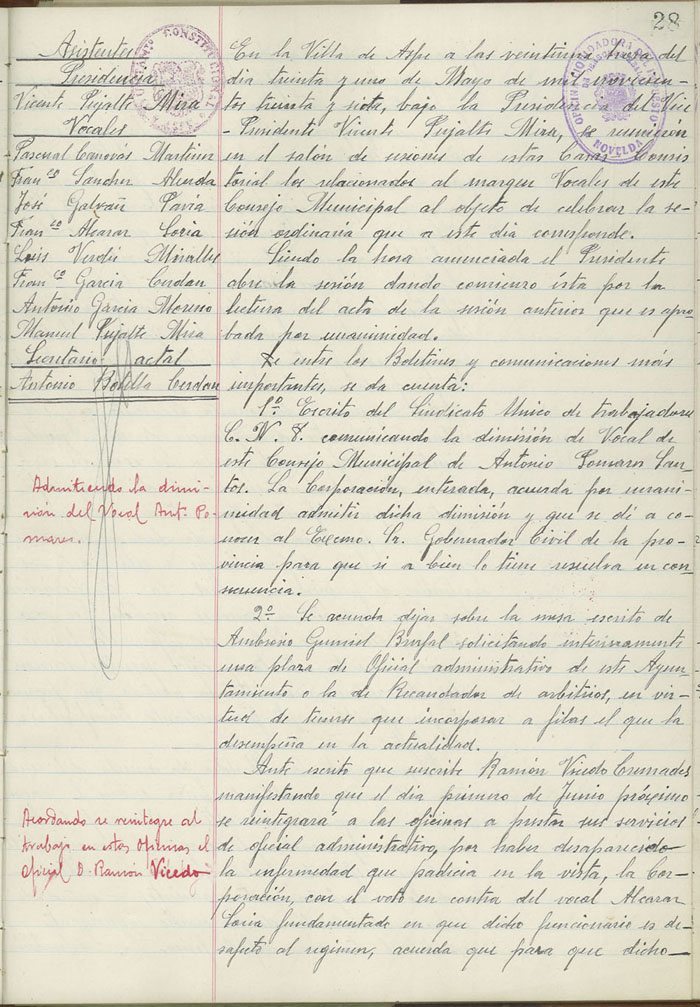 28
Asistentes
Presidencia
Vicente Pujalte Mira
Vocales
Pascual Cánovas Martinez
Franco Sanchez Alzada
José Galvañ Pavia
Franco Alcaraz Soria
Luis Verdú Miralles
Franco Garcia Cerdan
Antonio Garcia Moreno
Manuel Pujalte Mira
Secretario actal
Antonio Botella Cerdan
Admitiendo la dimi-
sión del Vocal Ant. Po-
mares.
Acordando se reintegre al
trabajo en estas Oficinas el
oficial D. Ramón Vicedo
En la Villa de Aspe a las veintiuna horas del
dia treinta y uno de Mayo de mil novecien-
tos treinta y siete, bajo la Presidencia del Vice
-Presidente Vicente Pujalte Mira, se reunieron
en el salon de sesiones de estas Casas Consis
toriales los relacionados al margen Vocales de este
Consejo Municipal al objeto de celebrar la se-
sión ordinaria que a este dia corresponde.
Siendo la hora anunciada el Presidente
abre la sesión dando comienzo ésta por la
lectura del acta de la sesión anterior que es apro-
bada por unanimidad.
De entre los Boletines y comunicaciones más
importantes, se da cuenta:
1º. Escrito del Sindicato Unico de trabajadores
C. N. T. comunicando la dimisión de Vocal de
este Consejo Municipal de Antonio Pomares San-
tos. La Corporación, enterada, acuerda por unani-
midad admitir dicha dimisión y que se dé a co-
nocer al Excmo. Sr. Gobernador Civil de la pro-
vincia para que si a bien lo tiene resuelva en con-
secuencia.
2º. Se acuerda dejar sobre la mesa escrito de
Ambrosio solicitando interinamente
una plaza de Oficial administrativo de este Ayun-
tamiento o la de Recaudador de arbitrios, en vir-
tud de tenerse que incorporar a filas el que la
desempeña en la actualidad.
Ante escrito que suscribe Ramón Vicedo Cremades
manifestando que el dia primero de Junio próximo
se reintegrará a las oficinas a prestar sus servicios
de oficial administrativo, por haber desaparecido
la enfermedad que padecia en la vista, la Cor-
poración, con el voto en contra del vocal Alcaraz
Soria fundamentado en que dicho funcionario es de-
safecto al regimen, acuerda que para que dicho